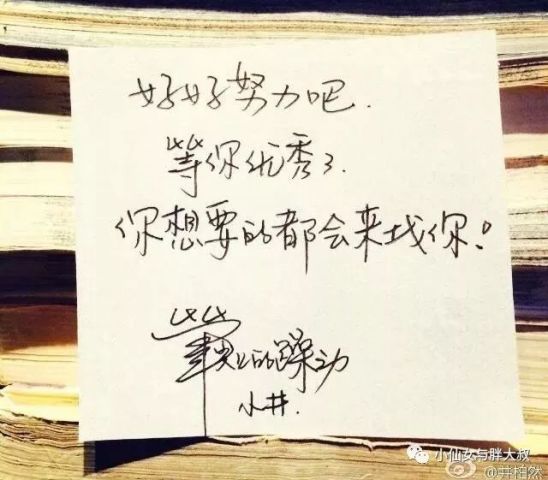 好好努力吧.
等你优秀了.
你想要的都会来找你!
的躁动
小井.
小仙女与胖大叔
@井柏然